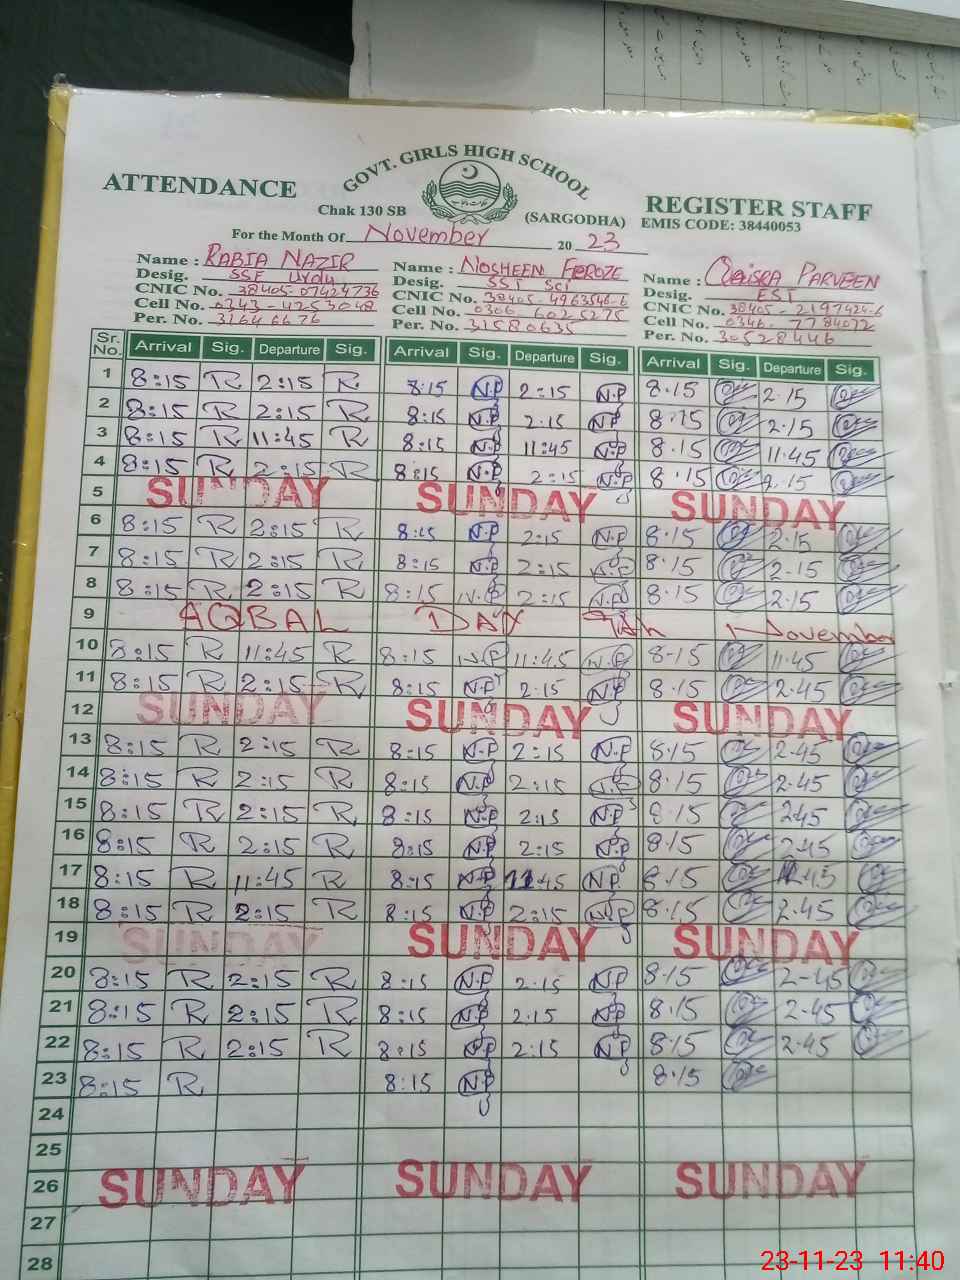 GOVT. GIRLS HIGH SCHOOL
ATTENDANCE REGISTER STAFF
Chak 130 SB (SARGODHA) EMIS CODE: 38440053
For the Month Of November 20 23
Name : RABIA NAZIR Name : NOSHEEN FEROZE Name : PARVEEN
Desig. SSE Urdu Desig. SST Sci Desig. EST
CNIC No. 38405-07424736 CNIC No. 38405-4963546-6 CNIC No. 38405-2197424-6
Cell No. 0343-4253048 Cell No. 0306-6025275 Cell No. 0346-7784072
Per. No. 31646676 Per. No. 31580635 Per. No. 30528446
Sr. No. Arrival Sig. Departure Sig. Arrival Sig. Departure Sig. Arrival Sig. Departure Sig.
1 8:15 R 2:15 R 8:15 N.P 2:15 N.P 8.15 2.15
2 8:15 R 2:15 R 8:15 N.P 2.15 N.P 8.15 2.15
3 8:15 R 11:45 R 8:15 N.P 11:45 N.P 8.15 11.45
4 8:15 R 2:15 R 8:15 N.P 2:15 N.P 8.15 2.15
5 SUNDAY SUNDAY SUNDAY
6 8:15 R 2:15 R 8:15 N.P 2:15 N.P 8.15 2.15
7 8:15 R 2:15 R 8:15 N.P 2:15 N.P 8.15 2-15
8 8:15 R 2:15 R 8:15 N.P 2:15 N.P 8.15 2.15
9 AQBAL DAY 9th November
10 8:15 R 11:45 R 8:15 N.P 11:45 N.P 8-15 11.45
11 8:15 R 2:15 R 8:15 N.P 2:15 N.P 8.15 2.45
12 SUNDAY SUNDAY SUNDAY
13 8:15 R 2:15 R 8:15 N.P 2:15 N.P 8.15 2.45
14 8:15 R 2:15 R 8:15 N.P 2:15 N.P 8.15 2.45
15 8:15 R 2:15 R 8:15 N.P 2:15 N.P 8.15 2.45
16 8:15 R 2:15 R 8:15 N.P 2:15 N.P 8.15 2.45
17 8:15 R 11:45 R 8:15 N.P 11:45 N.P 8.15
18 8:15 R 2:15 R 8:15 N.P 2:15 N.P 8.15 2.45
19 SUNDAY SUNDAY SUNDAY
20 8:15 R 2:15 R 8:15 N.P 2.15 N.P 8.15 2-45
21 8:15 R 2:15 R 8:15 N.P 2.15 N.P 8.15 2.45
22 8:15 R 2:15 R 8:15 N.P 2:15 N.P 8.15 2.45
23 8:15 R 8:15 N.P 8.15
24
25
26 SUNDAY SUNDAY SUNDAY
27
28
23-11-23 11:40